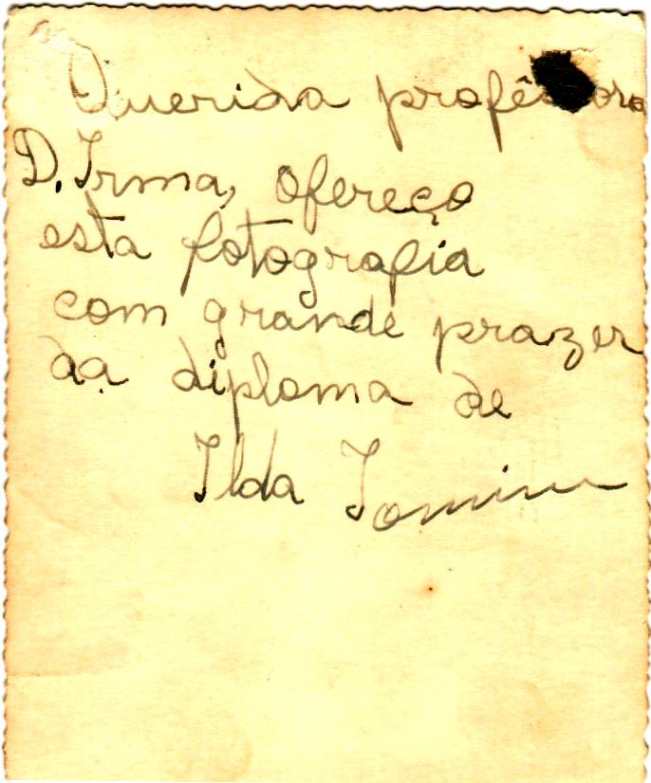 Querida profêssora
D. Irma, ofereço
esta fotografia
com grande prazer
da diploma de
Ilda